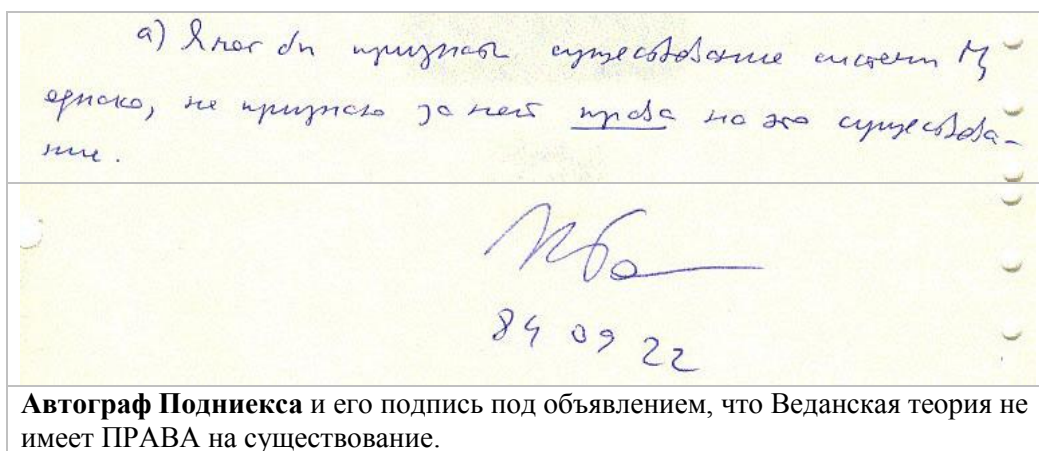 а) Я мог бы признать существование системы M,
однако, не признаю за ней права на это существова-
ние.
84 09 22
Автограф Подниекса и его подпись под объявлением, что Веданская теория не
имеет ПРАВА на существование.